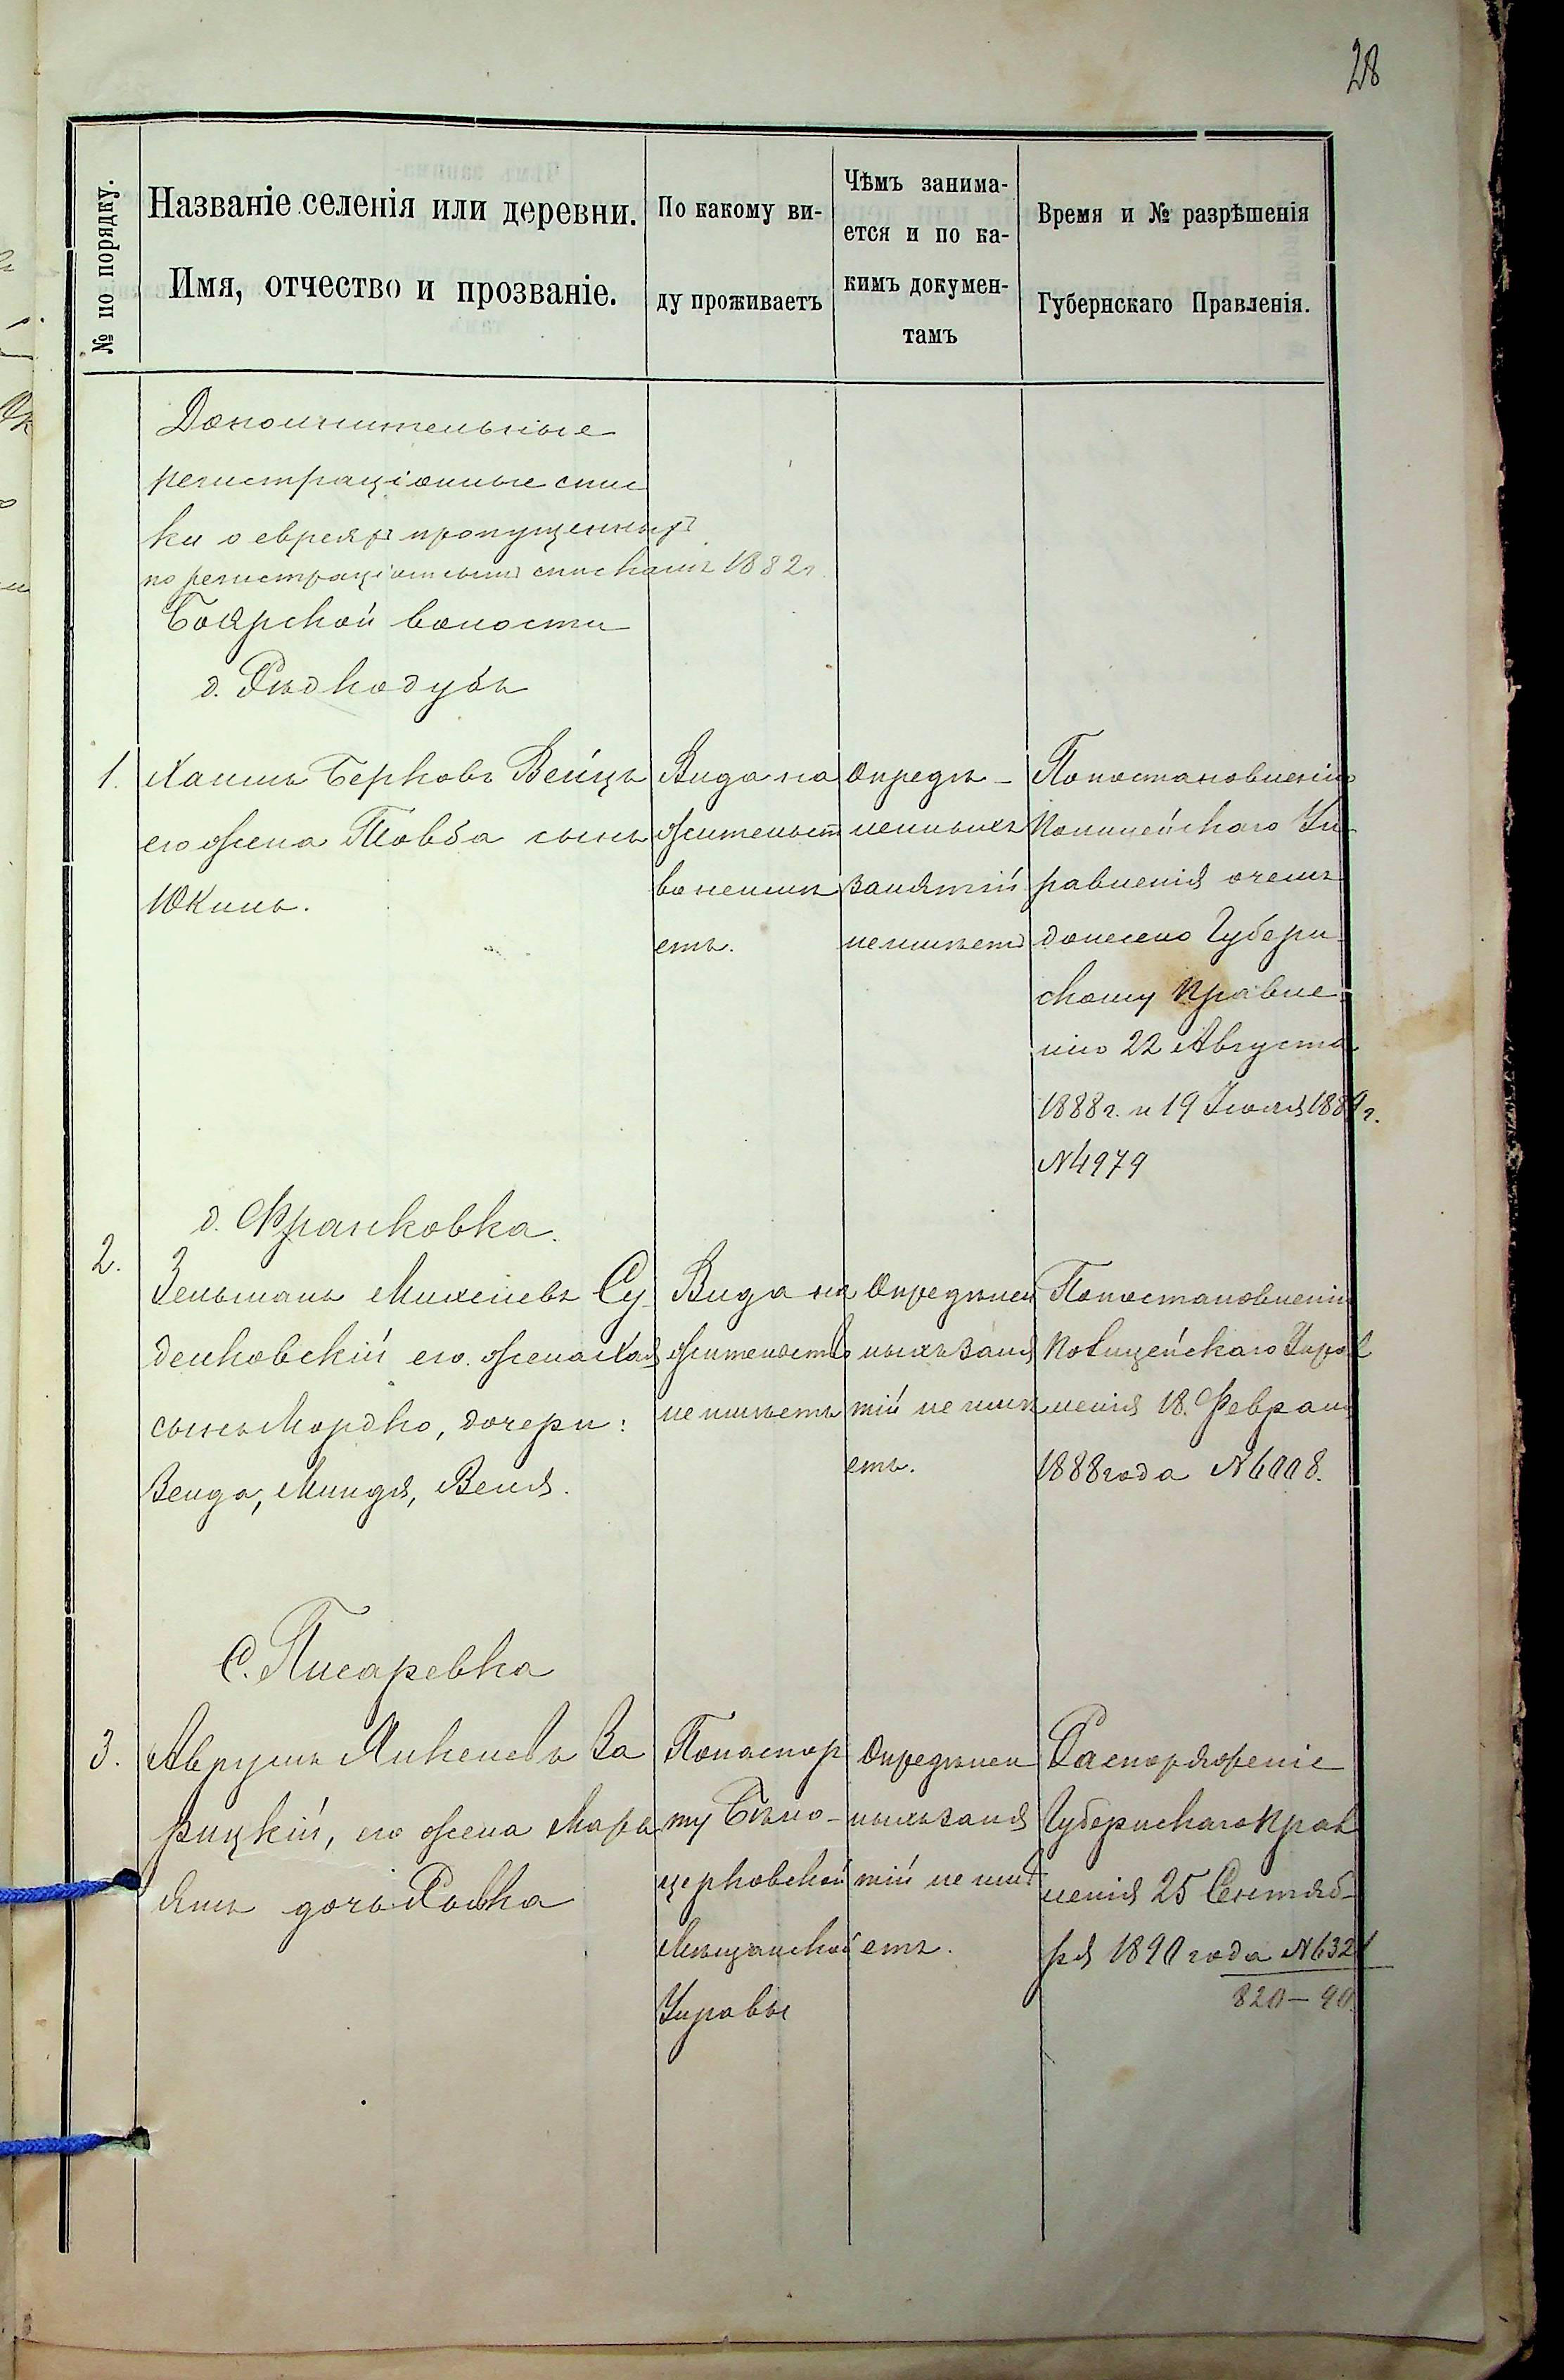 28
№ по порядку.
Названіе селенія или деревни.
Имя, отчество и прозваніе.
По какому ви-
ду проживаетъ
Чѣмъ занима-
ется и по ка-
кимъ докумен-
тамъ
Время и № разрѣшенія
Губернскаго Правленія.
Дополнительные
регистраціонные спис
ки о евреяхъ пропущенныхъ
по регистраціоннымъ спискамъ 1882 г.
Боярской волости
д. Рѣдкодубъ
1.
Хаимъ Берковъ Вейцъ
его жена Товба сынъ
Юкиль.
Вида на
жительст
во неимѣ
етъ.
Опредѣ-
ленныхъ
занятій
неимѣетъ
По постановленію
Полицейскаго Уп-
равленія о чемъ
донесено Губерн-
скому Правле-
нію 22 Августа
1888 г. и 19 Іюля 1889 г.
№ 4979
д. Франковка.
2.
Зельманъ Михелевъ Су-
денковскій его жена Хая
сынъ Мордко, дочери:
Зельда, Миндя, Веля.
Вида на
жительство
не имѣетъ
Опредѣлен
ныхъ заня
тій не имѣ
етъ.
По постановленію
Полицейскаго Управ
ленія 18 Февраля
1888 года № 6008.
С. Писаревка
3.
Аврумъ Янкелевъ За
рицкій, его жена Марь
ямъ дочь Ривка
По паспор
ту Бѣло-
церковской
Мѣщанской
Управы
Опредѣлен
ныхъ заня
тій не имѣ
етъ.
Распоряженіе
Губернскаго Прав
ленія 25 Сентяб-
ря 1890 года № 6321
820-90